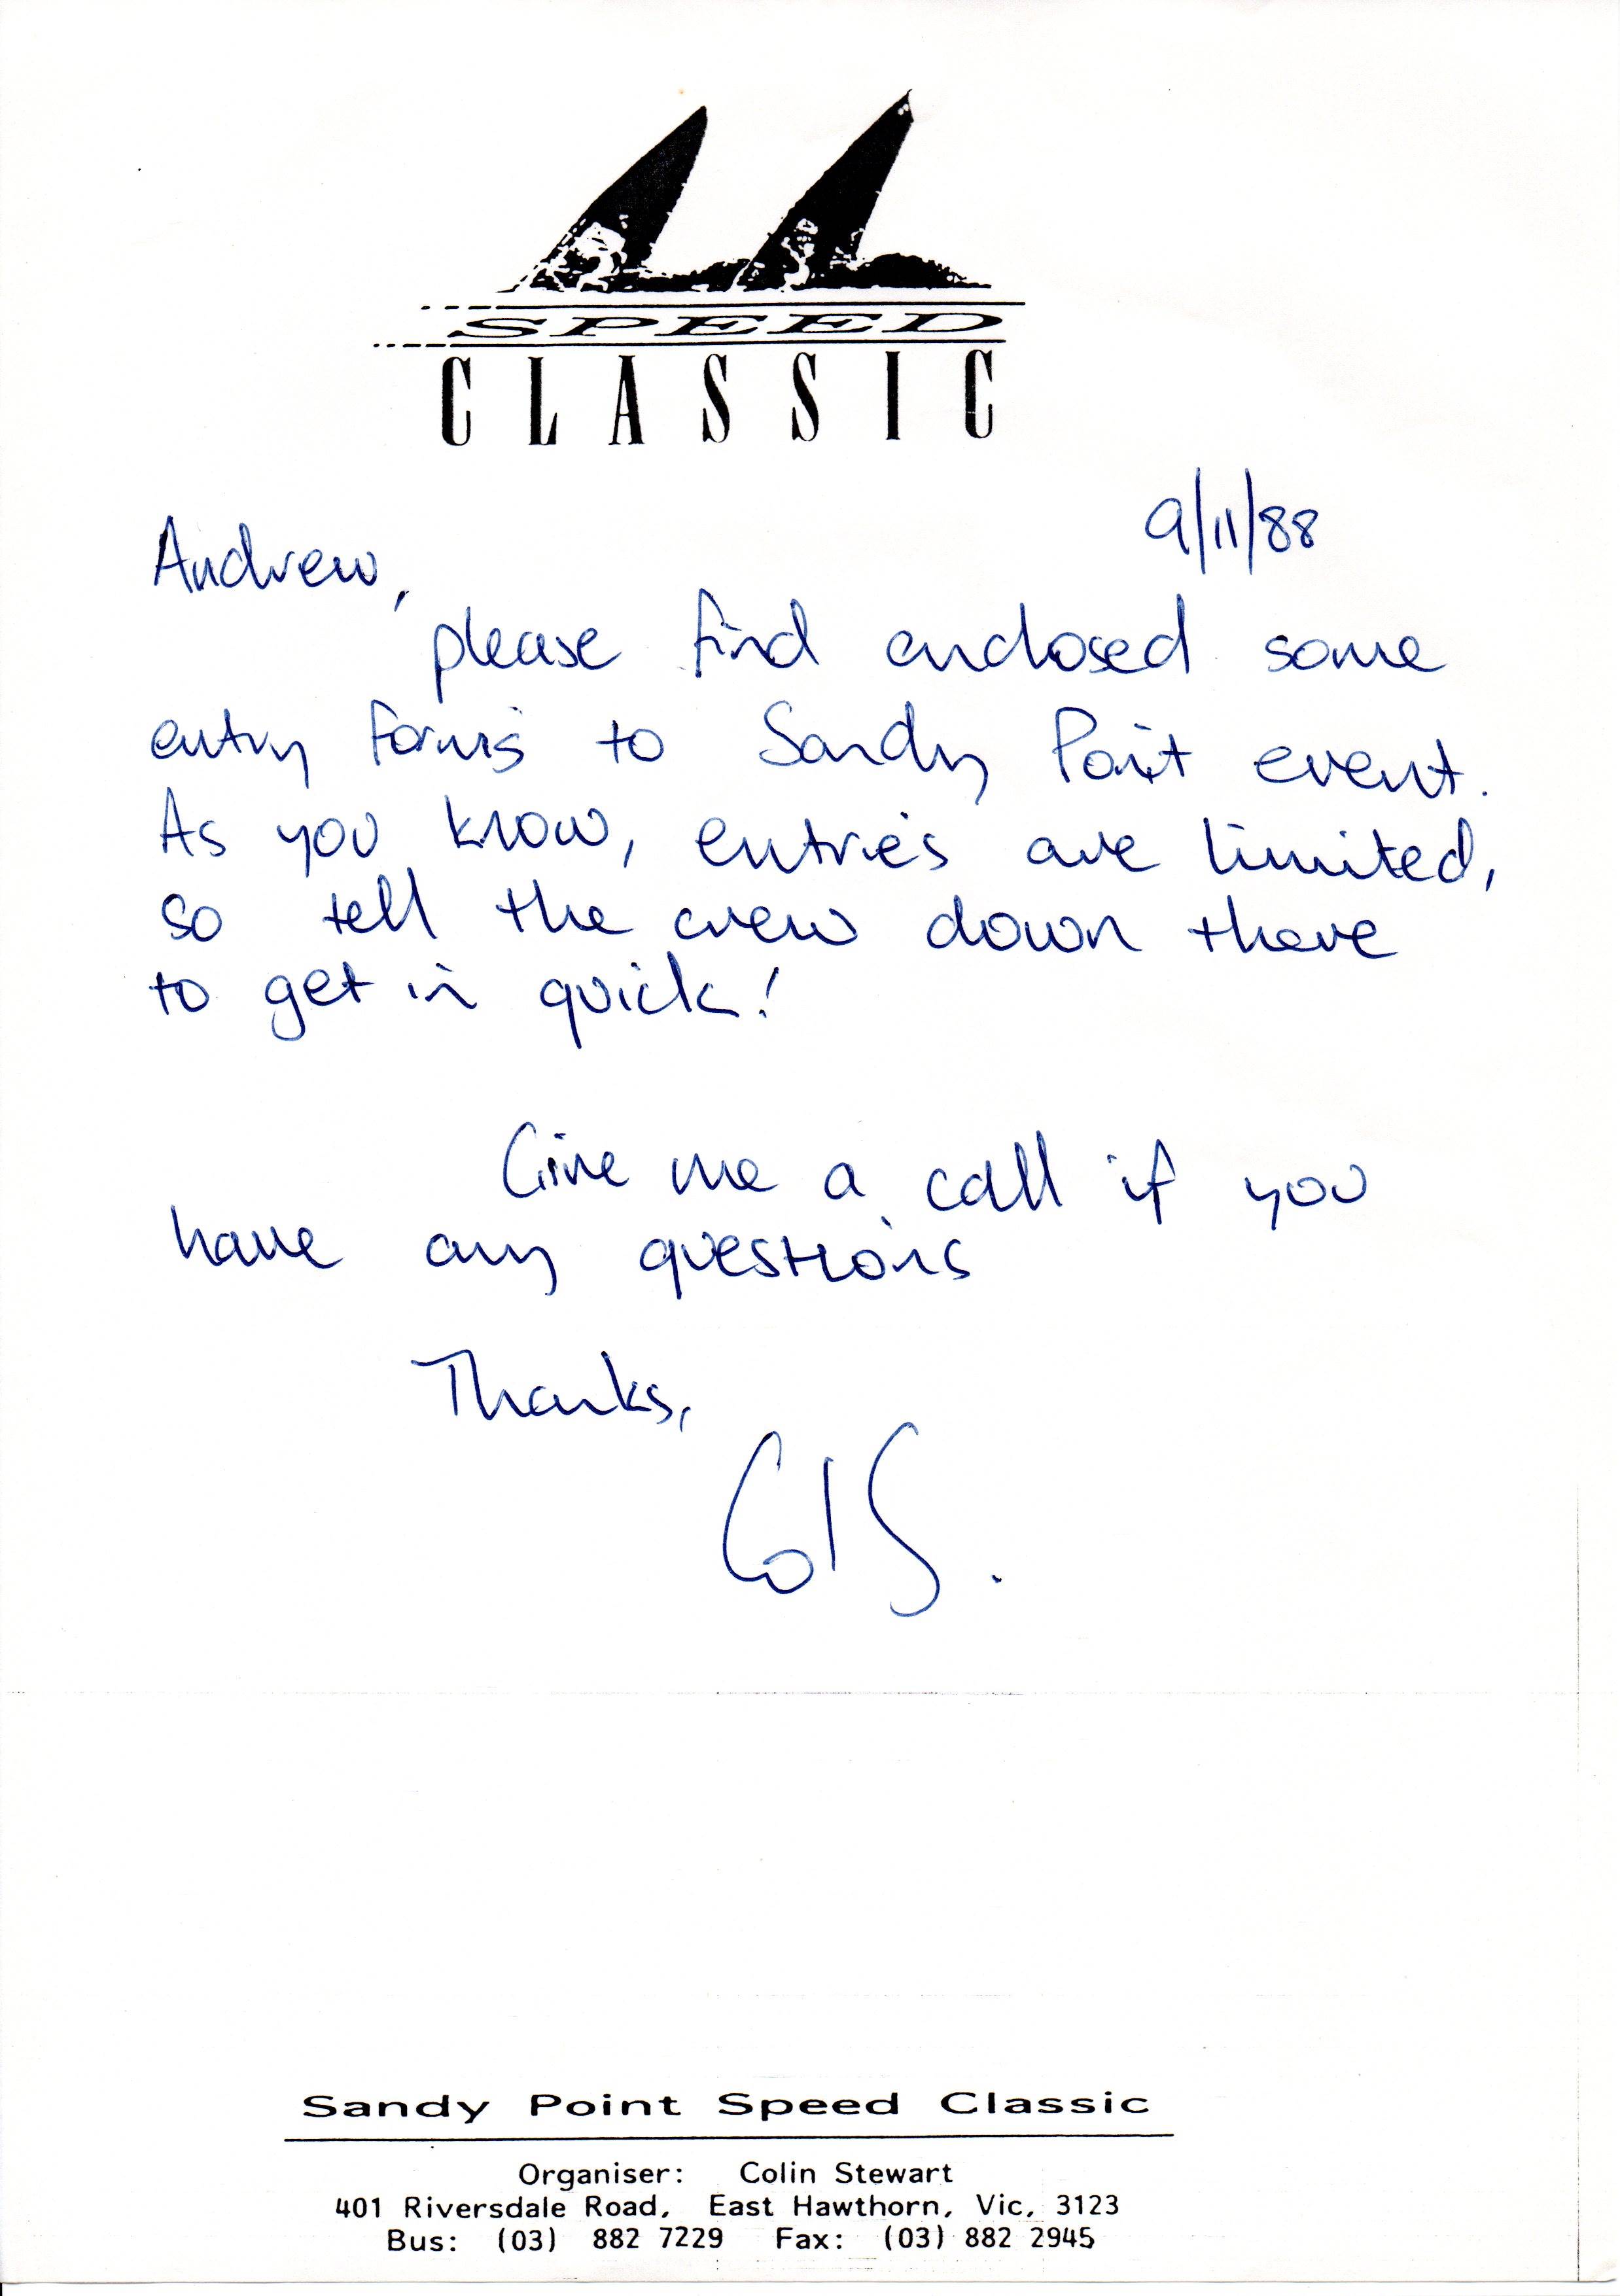 SPEED
CLASSIC
9/11/88
Andrew,
please find enclosed some
entry forms to Sandy Point event.
As you know, entries are limited,
so tell the crew down there
to get in quick!
Give me a call if you
have any questions
Thanks,
Col S.
Sandy Point Speed Classic
Organiser: Colin Stewart
401 Riversdale Road, East Hawthorn, Vic, 3123
Bus: (03) 882 7229 Fax: (03) 882 2945